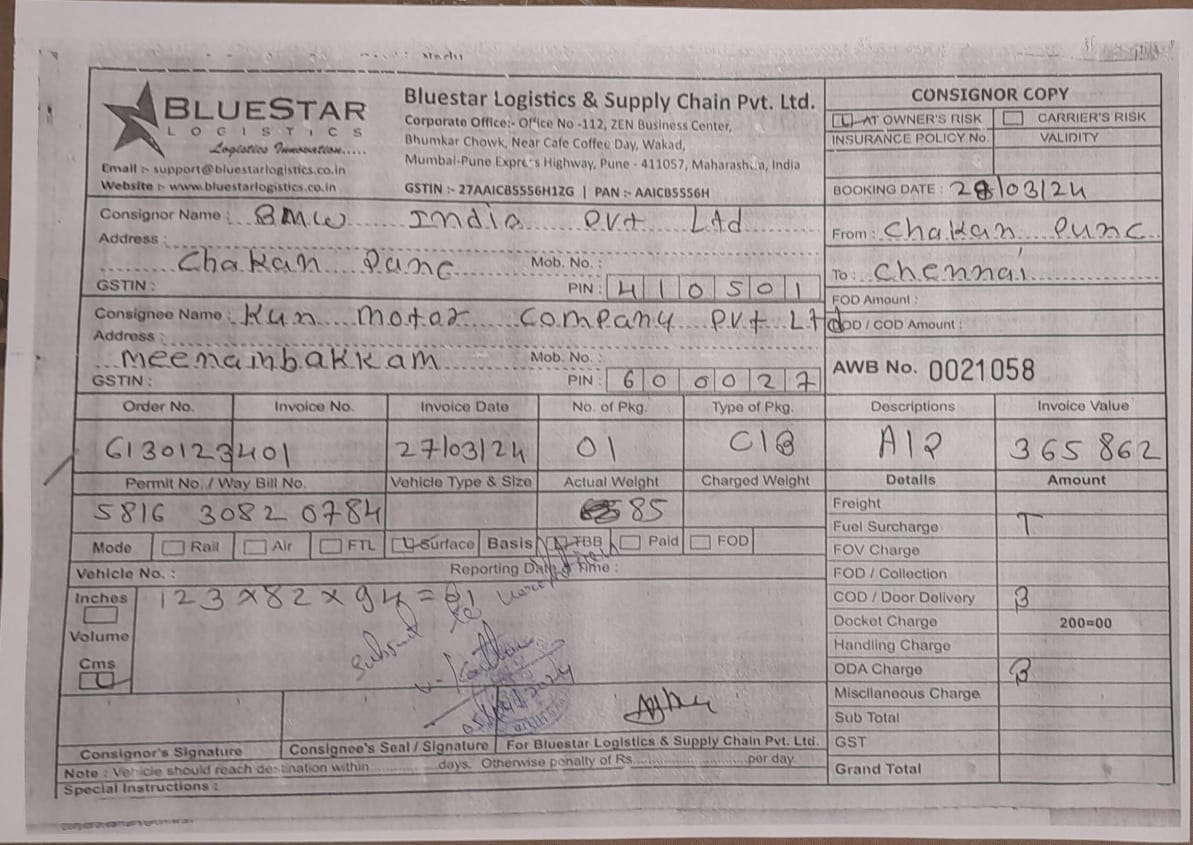 BLUESTAR
LOGISTICS
Logistics Innovation.....
Email :- support@bluestarlogistics.co.in
Website :- www.bluestarlogistics.co.in
Bluestar Logistics & Supply Chain Pvt. Ltd.
Corporate Office:- Office No -112, ZEN Business Center,
Bhumkar Chowk, Near Cafe Coffee Day, Wakad,
Mumbai-Pune Express Highway, Pune - 411057, Maharashtra, India
GSTIN :- 27AAICB5556H1ZG | PAN :- AAICB5556H
CONSIGNOR COPY
AT OWNER'S RISK CARRIER'S RISK
INSURANCE POLICY No. VALIDITY
BOOKING DATE : 28/03/24
Consignor Name : BMW India Pvt Ltd
Address :
Chakan Pune Mob. No. :
GSTIN : PIN : 410501
From : Chakan, Pune
To : Chennai
FOD Amount :
FOD / COD Amount :
Consignee Name : Kun Motar Company Pvt Ltd
Address :
Meenainbakkam Mob. No. :
GSTIN : PIN : 600027
AWB No. 0021058
Order No. Invoice No. Invoice Date No. of Pkg. Type of Pkg. Descriptions Invoice Value
6130123401 27/03/24 01 C/B A/P 365862
Permit No. / Way Bill No. Vehicle Type & Size Actual Weight Charged Weight Details Amount
5816 3082 0784 85
Mode Rail Air FTL Surface Basis TBB Paid FOD
Vehicle No. : Reporting Date & Time :
Inches
Volume
Cms
123x82x94=61
Submit to
Freight
Fuel Surcharge T
FOV Charge
FOD / Collection
COD / Door Delivery B
Docket Charge 200=00
Handling Charge
ODA Charge B
Miscllaneous Charge
Sub Total
GST
Grand Total
Consignor's Signature Consignee's Seal / Signature For Bluestar Logistics & Supply Chain Pvt. Ltd.
Note : Vehicle should reach destination within..............days. Otherwise penalty of Rs.......................per day.
Special Instructions :